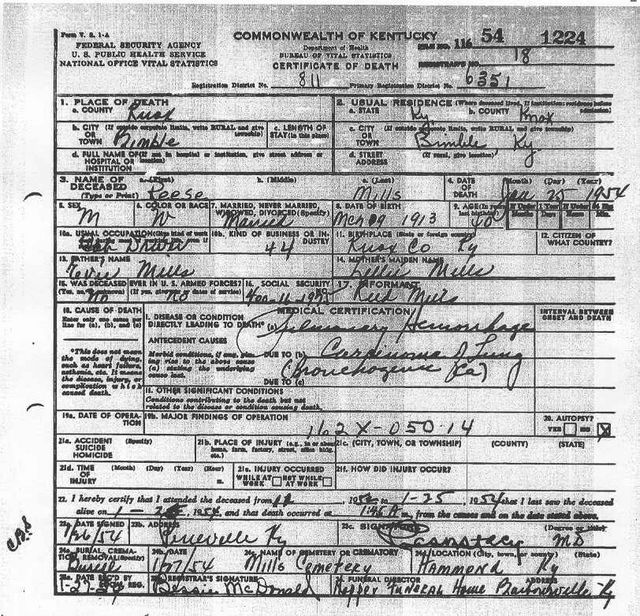 Form V. S. 1-A
FEDERAL SECURITY AGENCY
U. S. PUBLIC HEALTH SERVICE
NATIONAL OFFICE VITAL STATISTICS
COMMONWEALTH OF KENTUCKY
Department of Health
BUREAU OF VITAL STATISTICS
CERTIFICATE OF DEATH
FILE NO. 116 54 1224
REGISTRAR'S NO. 18
Registration District No. 811 Primary Registration District No. 6351
1. PLACE OF DEATH
a. COUNTY Knox
b. CITY OR TOWN (If outside corporate limits, write RURAL and give township) Bimble
c. LENGTH OF STAY (in this place)
d. FULL NAME OF HOSPITAL OR INSTITUTION (If not in hospital or institution, give street address or location)
2. USUAL RESIDENCE (Where deceased lived. If institution: residence before admission)
a. STATE Ky. b. COUNTY Knox
c. CITY OR TOWN (If outside corporate limits, write RURAL and give township) Bimble, Ky
d. STREET ADDRESS (If rural, give location)
3. NAME OF DECEASED (Type or Print) a. (First) Reese b. (Middle) c. (Last) Mills
4. DATE OF DEATH (Month) (Day) (Year) Jan 25 1954
5. SEX M
6. COLOR OR RACE W
7. MARRIED, NEVER MARRIED, WIDOWED, DIVORCED (Specify) Married
8. DATE OF BIRTH 1913
9. AGE (In years last birthday) 40 If Under 1 Year Months Days If Under 24 Hrs. Hours Min.
10a. USUAL OCCUPATION Driver
10b. KIND OF BUSINESS OR INDUSTRY 44
11. BIRTHPLACE (State or foreign country) Knox Co Ky
12. CITIZEN OF WHAT COUNTRY?
13. FATHER'S NAME Mills
14. MOTHER'S MAIDEN NAME Mills
15. WAS DECEASED EVER IN U. S. ARMED FORCES? (Yes, no, or unknown) (If yes, give war or dates of service) No no
16. SOCIAL SECURITY
17. INFORMANT Reid Mills
18. CAUSE OF DEATH
Enter only one cause per line for (a), (b), and (c)
*This does not mean the mode of dying, such as heart failure, asthenia, etc. It means the disease, injury, or complication which caused death.
MEDICAL CERTIFICATION
INTERVAL BETWEEN ONSET AND DEATH
I. DISEASE OR CONDITION DIRECTLY LEADING TO DEATH* (a) Pulmonary Hemorrhage
ANTECEDENT CAUSES
Morbid conditions, if any, giving rise to the above cause (a) stating the underlying cause last.
DUE TO (b) Carcinoma of Lung
DUE TO (c) (Bronchogenic Ca)
II. OTHER SIGNIFICANT CONDITIONS
Conditions contributing to the death but not related to the disease or condition causing death.
19a. DATE OF OPERATION
19b. MAJOR FINDINGS OF OPERATION
162X-050-14
20. AUTOPSY?
YES NO X
21a. ACCIDENT SUICIDE HOMICIDE (Specify)
21b. PLACE OF INJURY (e.g., in or about home, farm, factory, street, office bldg., etc.)
21c. (CITY, TOWN, OR TOWNSHIP) (COUNTY) (STATE)
21d. TIME OF INJURY (Month) (Day) (Year) (Hour) m.
21e. INJURY OCCURRED WHILE AT WORK NOT WHILE AT WORK
21f. HOW DID INJURY OCCUR?
22. I hereby certify that I attended the deceased from 1952 to 1-25 1954 that I last saw the deceased
alive on 1-25 1954 and that death occurred at 1:45 A m., from the causes and on the date stated above.
23a. DATE SIGNED 1/26/54
23b. ADDRESS Pineville Ky
23c. SIGNATURE (Degree or title) MD
24a. BURIAL, CREMATION, REMOVAL (Specify) Burial
24b. DATE 1/27/54
24c. NAME OF CEMETERY OR CREMATORY Mills Cemetery
24d. LOCATION (City, town, or county) (State) Hammond Ky
25a. DATE REC'D BY LOCAL REG. 1-27-54
REGISTRAR'S SIGNATURE Bessie McDonald
FUNERAL DIRECTOR ADDRESS Hopper Funeral Home Barbourville Ky